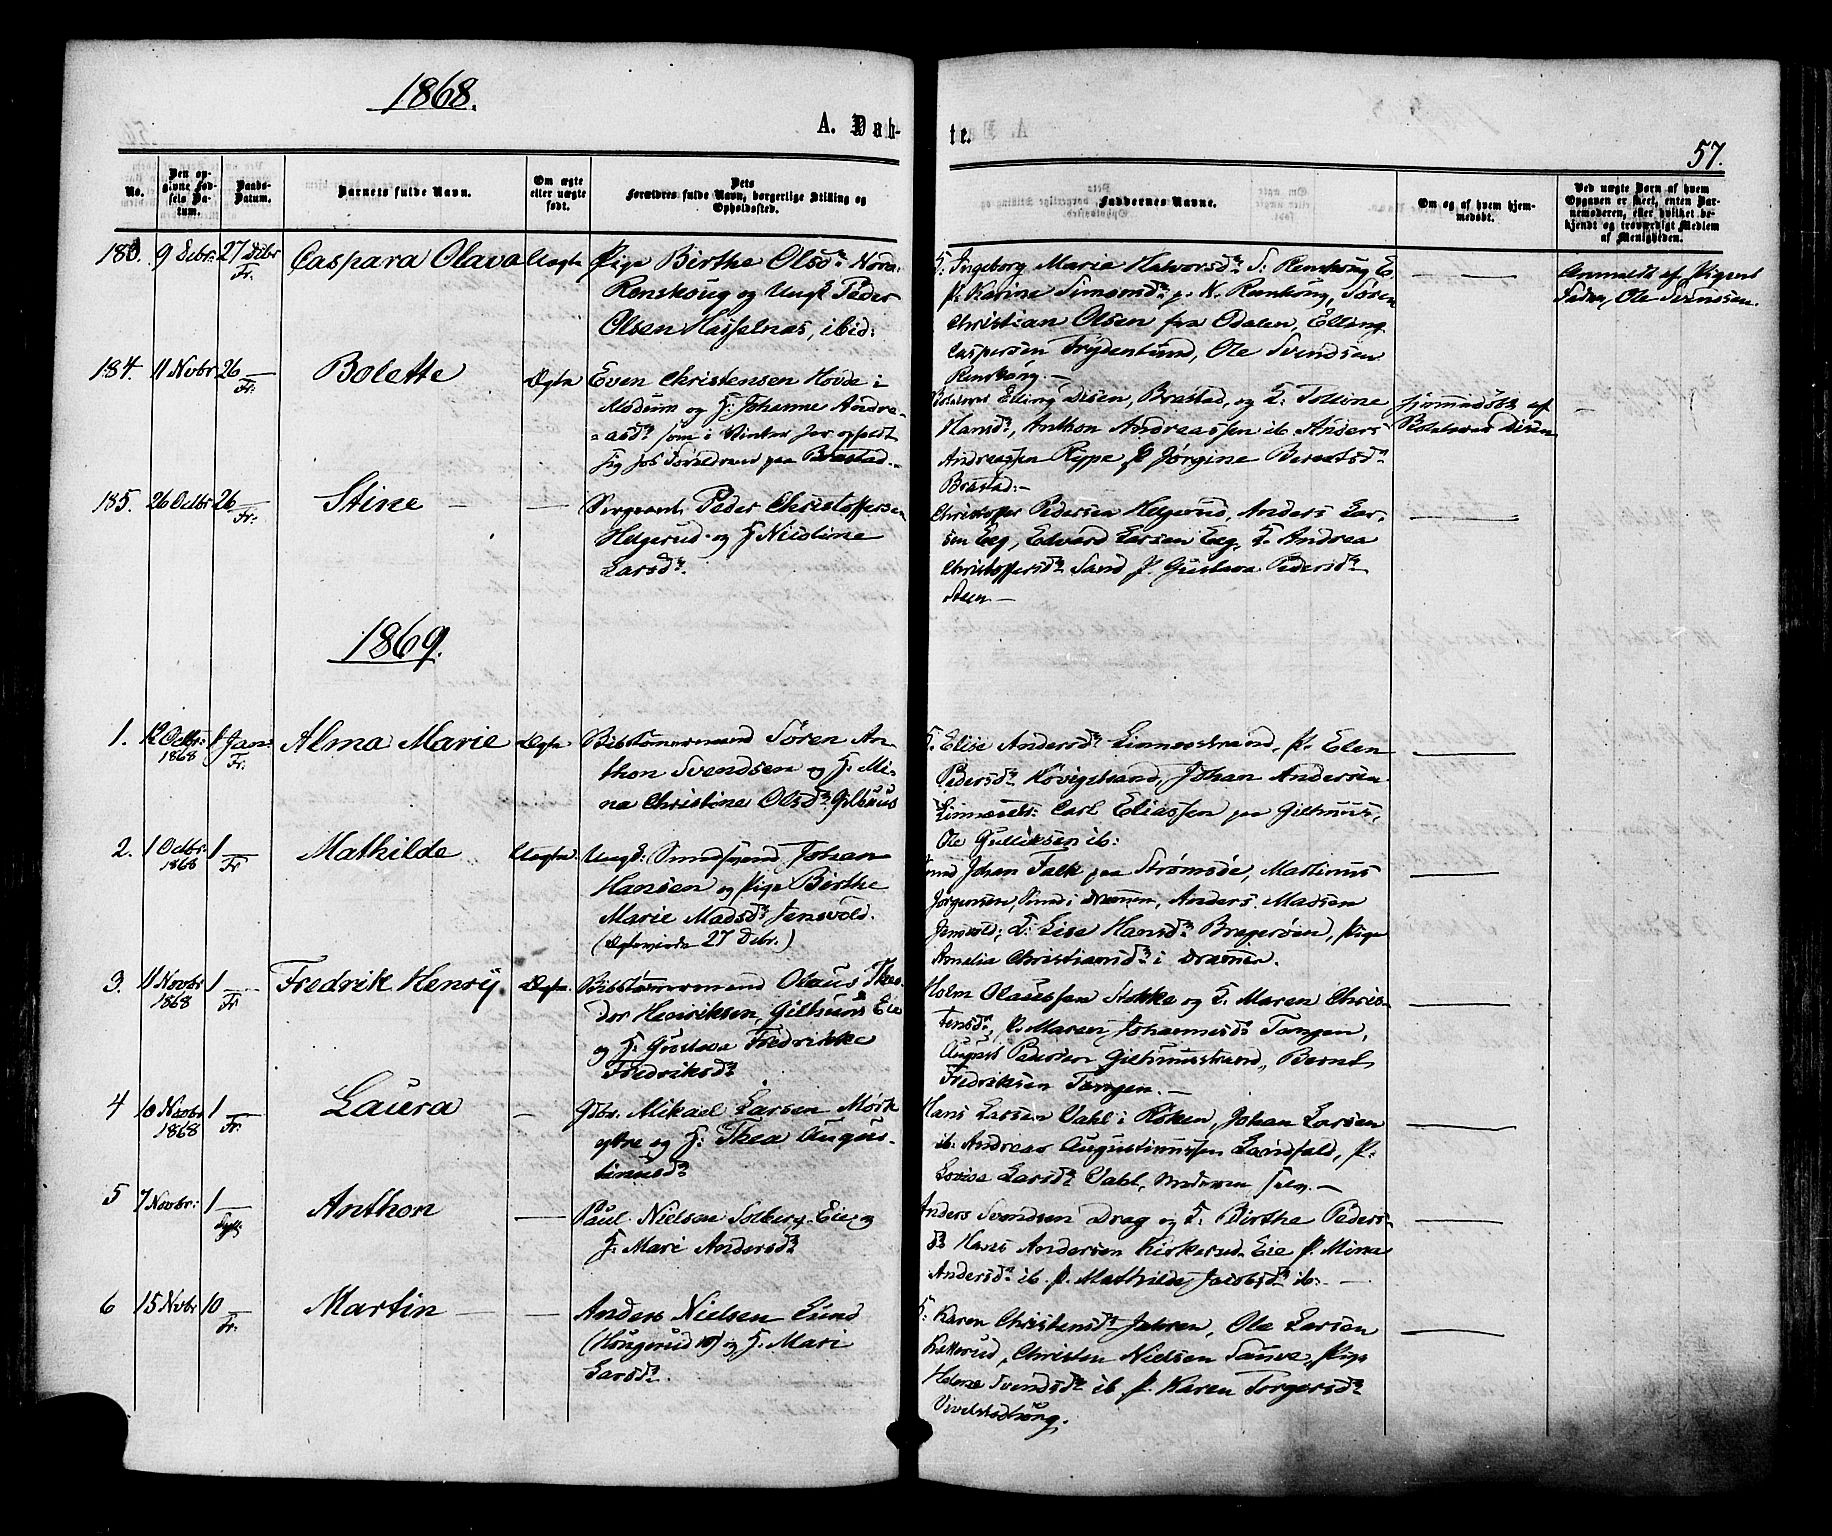 1868.
A. Døb-
te.
57.
No.
Den op-
givne Fød-
sels Da-
tum.
Daabs-
Datum.
Barnets fulde Navn.
Om ægte
eller uægte
født.
Dets
Forældres fulde Navn, borgerlige Stilling og
Opholdssted.
Faddernes Navne.
Om og af hvem hjem-
medøbt.
Ved uægte Børn af hvem
Opgaven er skeet, enten Bar-
nemoderen, eller hvilket be-
kjendt og troværdigt Medlem
af Menigheden.
183. 9 Debr: 27 Debr Fr. Caspara Olava Uægte Pige Birthe Olsdr Nordre
Renskoug og Ungk Peder
Olsen Hasselnæs, ibid:
F: Ingeborg Marie Halvorsdr S: Renskoug E
P. Karine Simonsdr p. N. Renskoug, Søren
Christian Olsen fra Odalen, Elling
Caspersen Frydenlund, Ole Svendsen
Renskoug. —
Anmeldt af Pigens
Fader, Ole Svendsen.
184. 11 Novbr 26 Fr: Bolette Ægte Even Christensen Hovde i
Modum og H: Johanne Andre-
asdr som i Vinter har opholdt
sig hos Forældrene paa Bråstad. —
Elling Disen, Bråstad, og F: Toline
Hansdr, Anthon Andreassen ib. Anders
Andreassen Rype P Jørgine Berntsdr
Bråstad: —
hjemmedøbt af
Disen
185. 26 Octbr 26 Fr: Stine — — Sergeant Peder Christoffersen
Helgerud og H Nicoline
Larsdr.
Christoffer Pedersen Helgerud, Anders Lar-
sen Eeg, Edvard Larsen Eeg, F. Andrea
Christoffersdr Sand P. Gustava Pedersdr
Steen —
1869.
1. 12 Octbr: 1868 1 Jan: Fr: Alma Marie Ægte Bødtømmermand Søren An-
thon Svendsen og H: Mi-
na Christine Olsdr Gilhuus
F. Elise Andersdr Linnesstrand, P. Elen
Pedersdr Høvigstrand, Johan Andersen
Linnesstr: Carl Eliassen paa Gilhuus,
Ole Gulliksen ib:
2. 1 Octbr: 1868 1 Fr Mathilde Uægte Ungk: Smedsvend Johan
Hansen og Pige Birthe
Marie Madsdr Jensvold.
(Ægteviede 27 Debr.)
Smed Johan Falk paa Strømsøe, Martinus
Jørgensen, Smed i Drammen, Anders Madsen
Jensvold; F: Lise Hansdr Bragerøen, Pige
Amalia Christiansdr i Drammen.
3. 11 Novbr 1868 1 Fr Fredrik Henrÿ Ægte Bødtømmermand Olaus Theo-
dor Henriksen, Gilhuus Eie
og H: Gustava Fredrikke
Fredriksdr
Holm Olaussen Stokke og F. Maren Chris-
tensdr, P. Maren Johannesdr Tangen,
August Pedersen Gilhuusstrand, Bernt
Fredriksen Tangen. —
4 10 Novbr 1868 1 Fr. Laura — Gbr. Mikael Larsen Mørk
ytre og H: Thea Augus-
tinusdr
Hans Larsen Dahl i Røken, Johan Larsen
ib. Andreas Augustinussen Landfald, P.
Lovise Larsdr Dahl, Moderen selv. —
5 7 Novbr: 1 Anthon — Paul Nielsen Solberg Eie og
H. Mari Andersdr
Anders Svendsen Drag og F. Birthe Peders-
dr Hans Andersen Kirkerud Eie P. Mina
Andersdr ib. P. Mathilde Jacobsdr ib: —
6 15 Novbr 10 Fr: Martin — — Anders Nielsen Lund
(Hougerud) og H: Mari
Larsdr.
F: Karen Christensdr Jahren, Ole Larsen
Christen Nielsen Pige
Helene Svendsdr ib P. Karen Torgersdr
Vevelstadhoug.